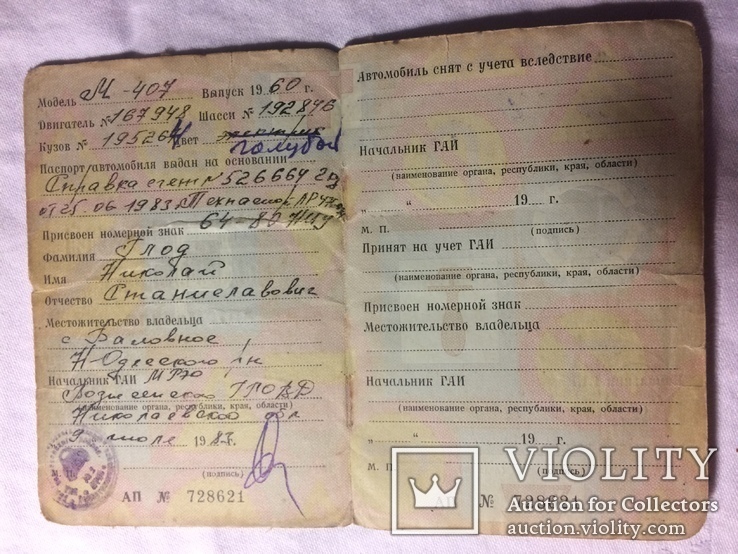 Модель М-407 Выпуск 1960 г.
Двигатель № 167948 Шасси № 192846
Кузов № 195264 Цвет голубой
Паспорт автомобиля выдан на основании
Справка счет № 526664
от 25.06 1983. Техпаспорт
Присвоен номерной знак 64-80
Фамилия Глод
Имя Николай
Отчество Станиславович
Местожительство владельца
с Баловное
Н-Одесского р-н
Начальник ГАИ МРЭО
Вознесенского ГРОВД
(наименование органа, республики, края, области)
Николаевской обл
9 июле 1983 г.
(подпись)
АП № 728621
Автомобиль снят с учета вследствие
Начальник ГАИ
(наименование органа, республики, края, области)
„ “ 19 г.
М. П. (подпись)
Принят на учет ГАИ
(наименование органа, республики, края, области)
Присвоен номерной знак
Местожительство владельца
Начальник ГАИ
(наименование органа, республики, края, области)
„ “ 19 г.
М. П. (подпись)
АП № 728621
VIOLITY
Auction for Collectors
auction.violity.com